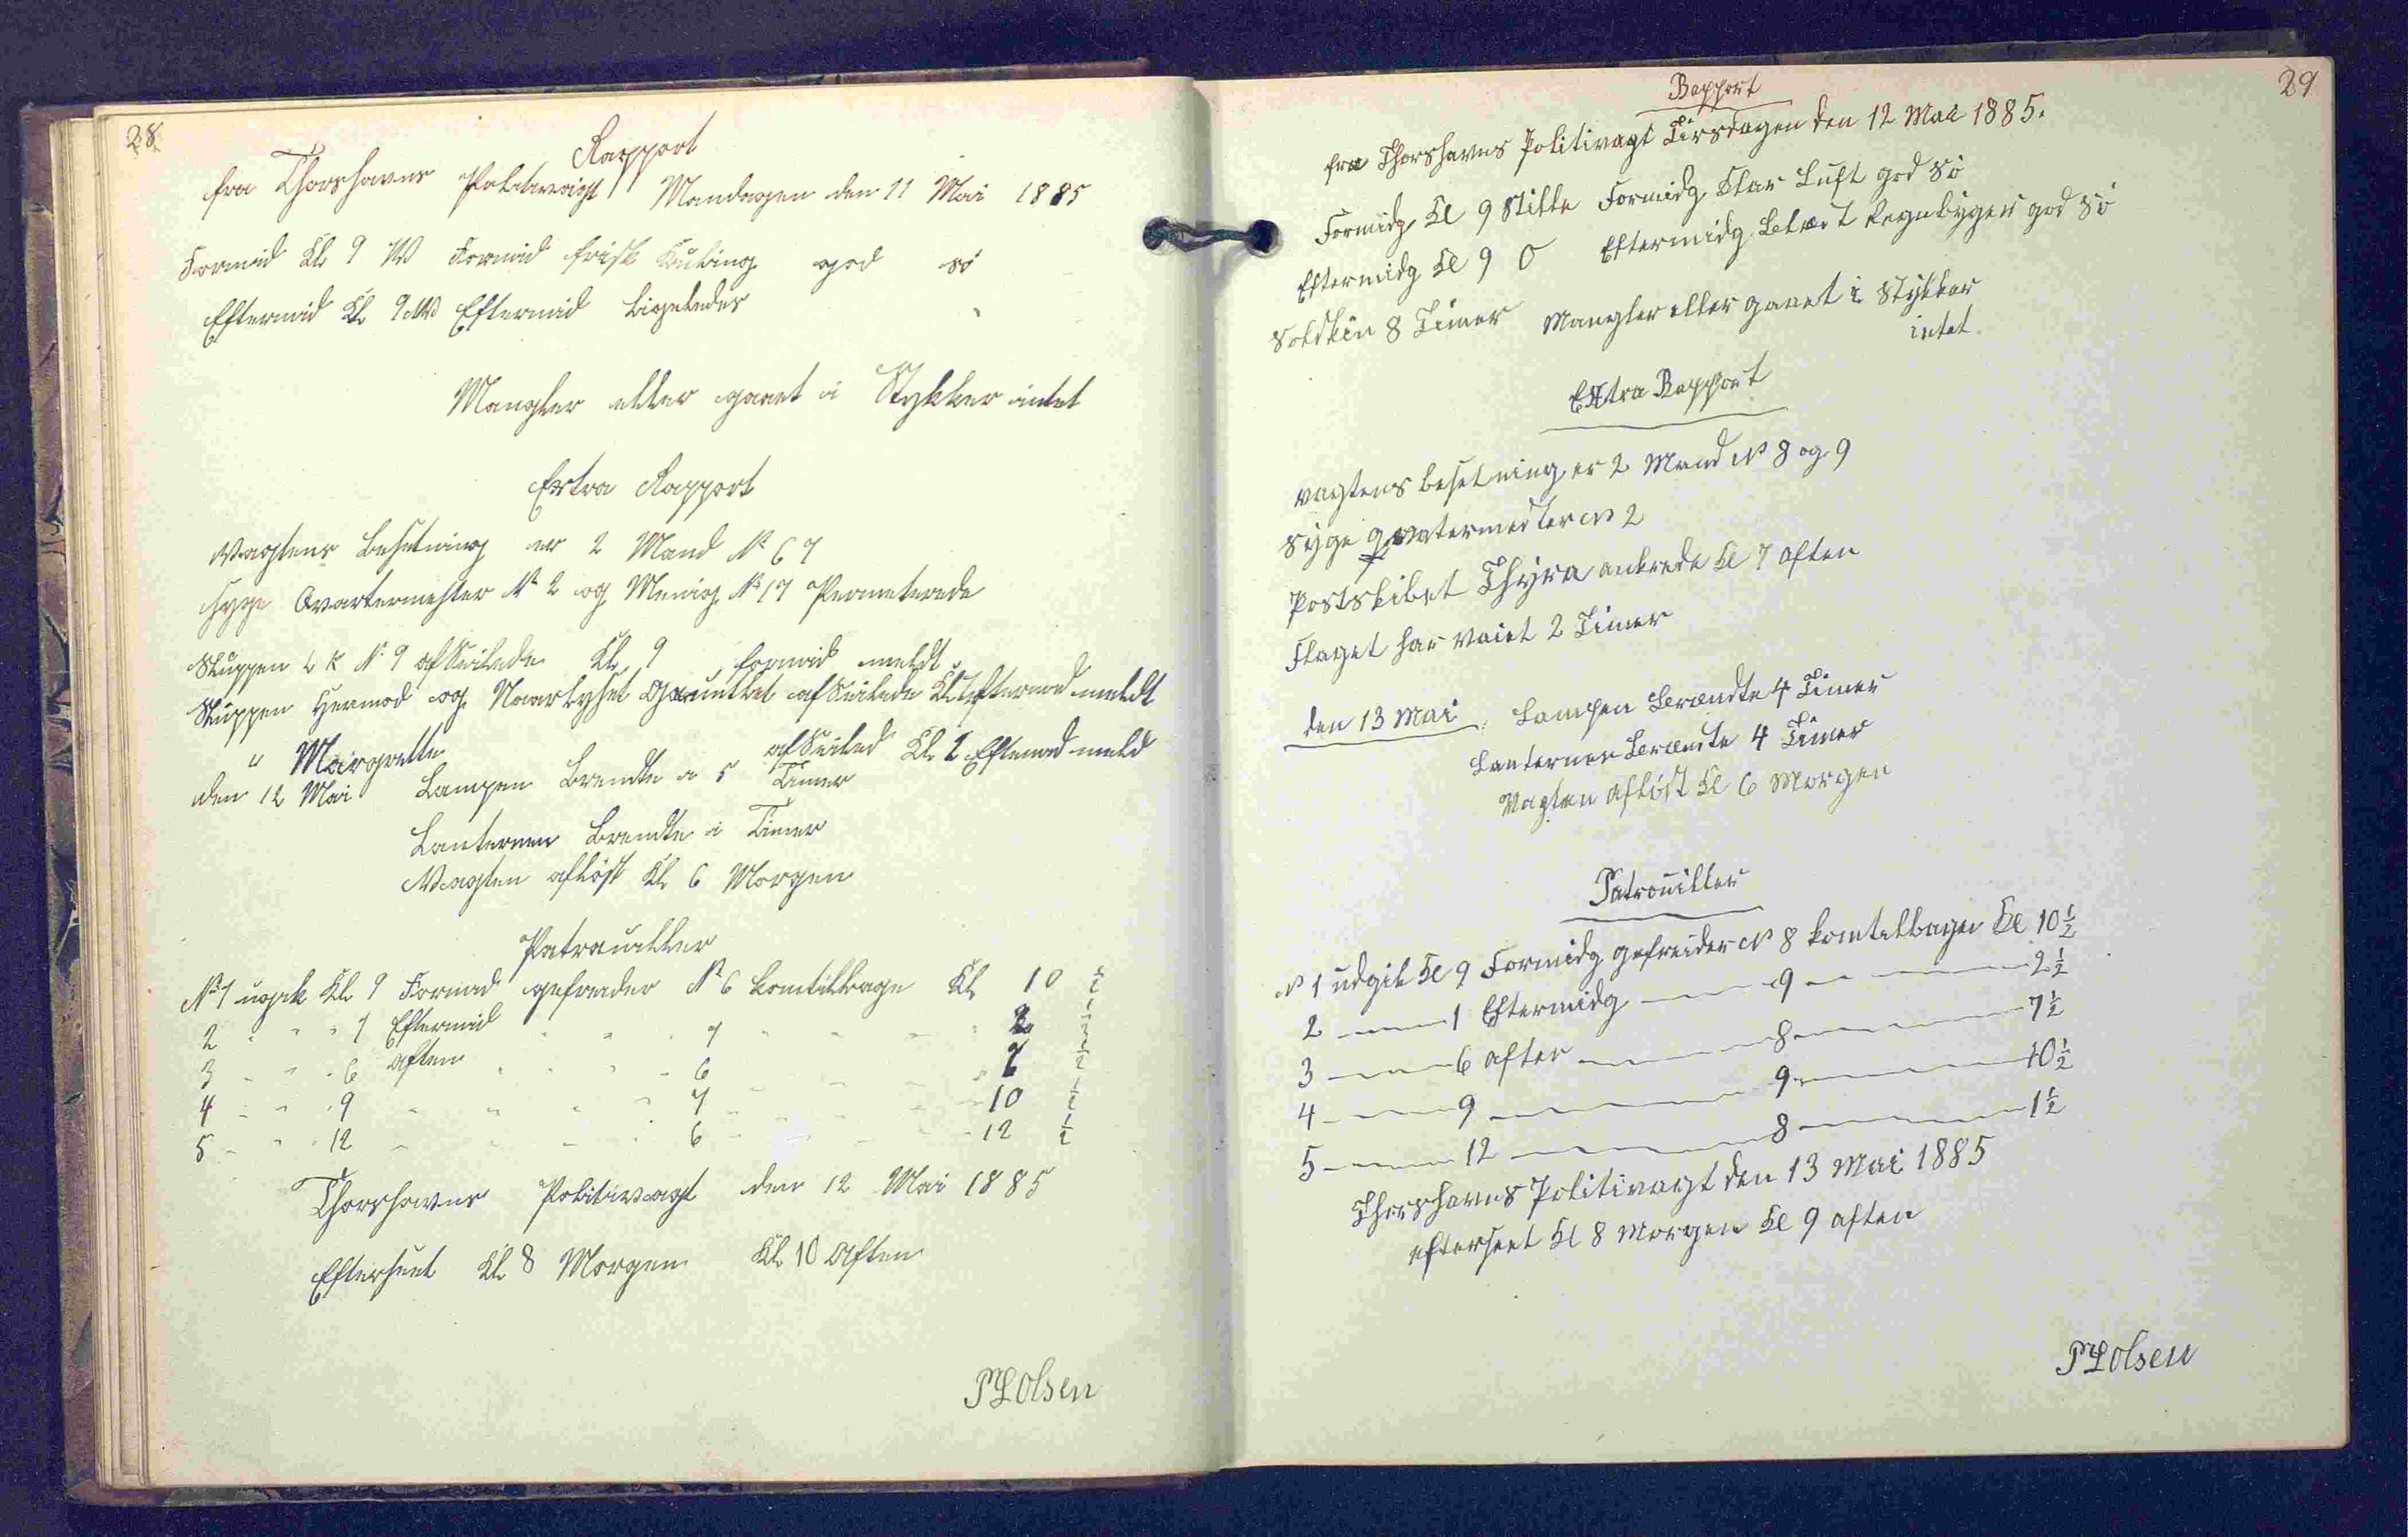 28
Rapport
fra Thorshavns Politivagt Mandagen den 11 Mai 1885
Formid Kl 9 W Formid frisk Kuling god sö
Eftermid Kl 9 W Eftermid Ligeledes
Mangler eller gaaet i Stykker intet
Extra Rapport
Vagtens Besetning er 2 Mand No 6 7
Syge Qvartermester No 2 og Menig No 17 Permeterede
Sluppen No 9 afseilede Kl 9 formid meldt
Sluppen Hermod og afseilede Kl Eftermid meldt
" Margrette afseiled Kl 2 Eftermid meld
den 12 Mai Lampen Brendte i 5 Timer
Lanternen Brendte i Timer
Vagten aflöst Kl 6 Morgen
Patrouiller
No 1 udgik Kl 9 Formid gefreider No 6 komtilbage Kl 10 ½
2 " " " 1 Eftermid " " " 7 " " " 2 ½
3 " " " 6 aften " " " 6 " " " 7 ½
4 " " " 9 " " " 7 " " " 10 ½
5 " " " 12 " " " 6 " " " 12 ½
Thorshavns Politivagt den 12 Mai 1885
Efterseet Kl 8 Morgen Kl 10 Aften
P L Olsen
29
Rapport
fra Thorshavns Politivagt Tirsdagen den 12 Mai 1885.
Formidg Kl 9 Stille Formidg Klar Luft god Sö
Eftermidg Kl 9 O Eftermidg Betræt Regnbyger god Sö
Solskin 8 Timer Mangler eller gaaet i Stykker
intet.
Extra Rapport
Vagtens Besetning er 2 Mand No 8 og 9
Syge Qvatermester No 2
Postskibet Thyra ankrede Kl 7 aften
Flaget har Vaiet 2 Timer
den 13 Mai. Lampen Brændte 4 Timer
Lanternen Brændte 4 Timer
Vagten aflöst Kl 6 Morgen
Patrouiller
No 1 udgik Kl 9 Formidg gefreider No 8 komtilbage Kl 10½
2 — 1 Eftermidg — 9 — 2½
3 — 6 after — 8 — 7½
4 — 9 — 9 — 10½
5 — 12 — 8 — 1½
Thorshavns Politivagt den 13 Mai 1885
efterseet Kl 8 Morgen Kl 9 aften
P L Olsen